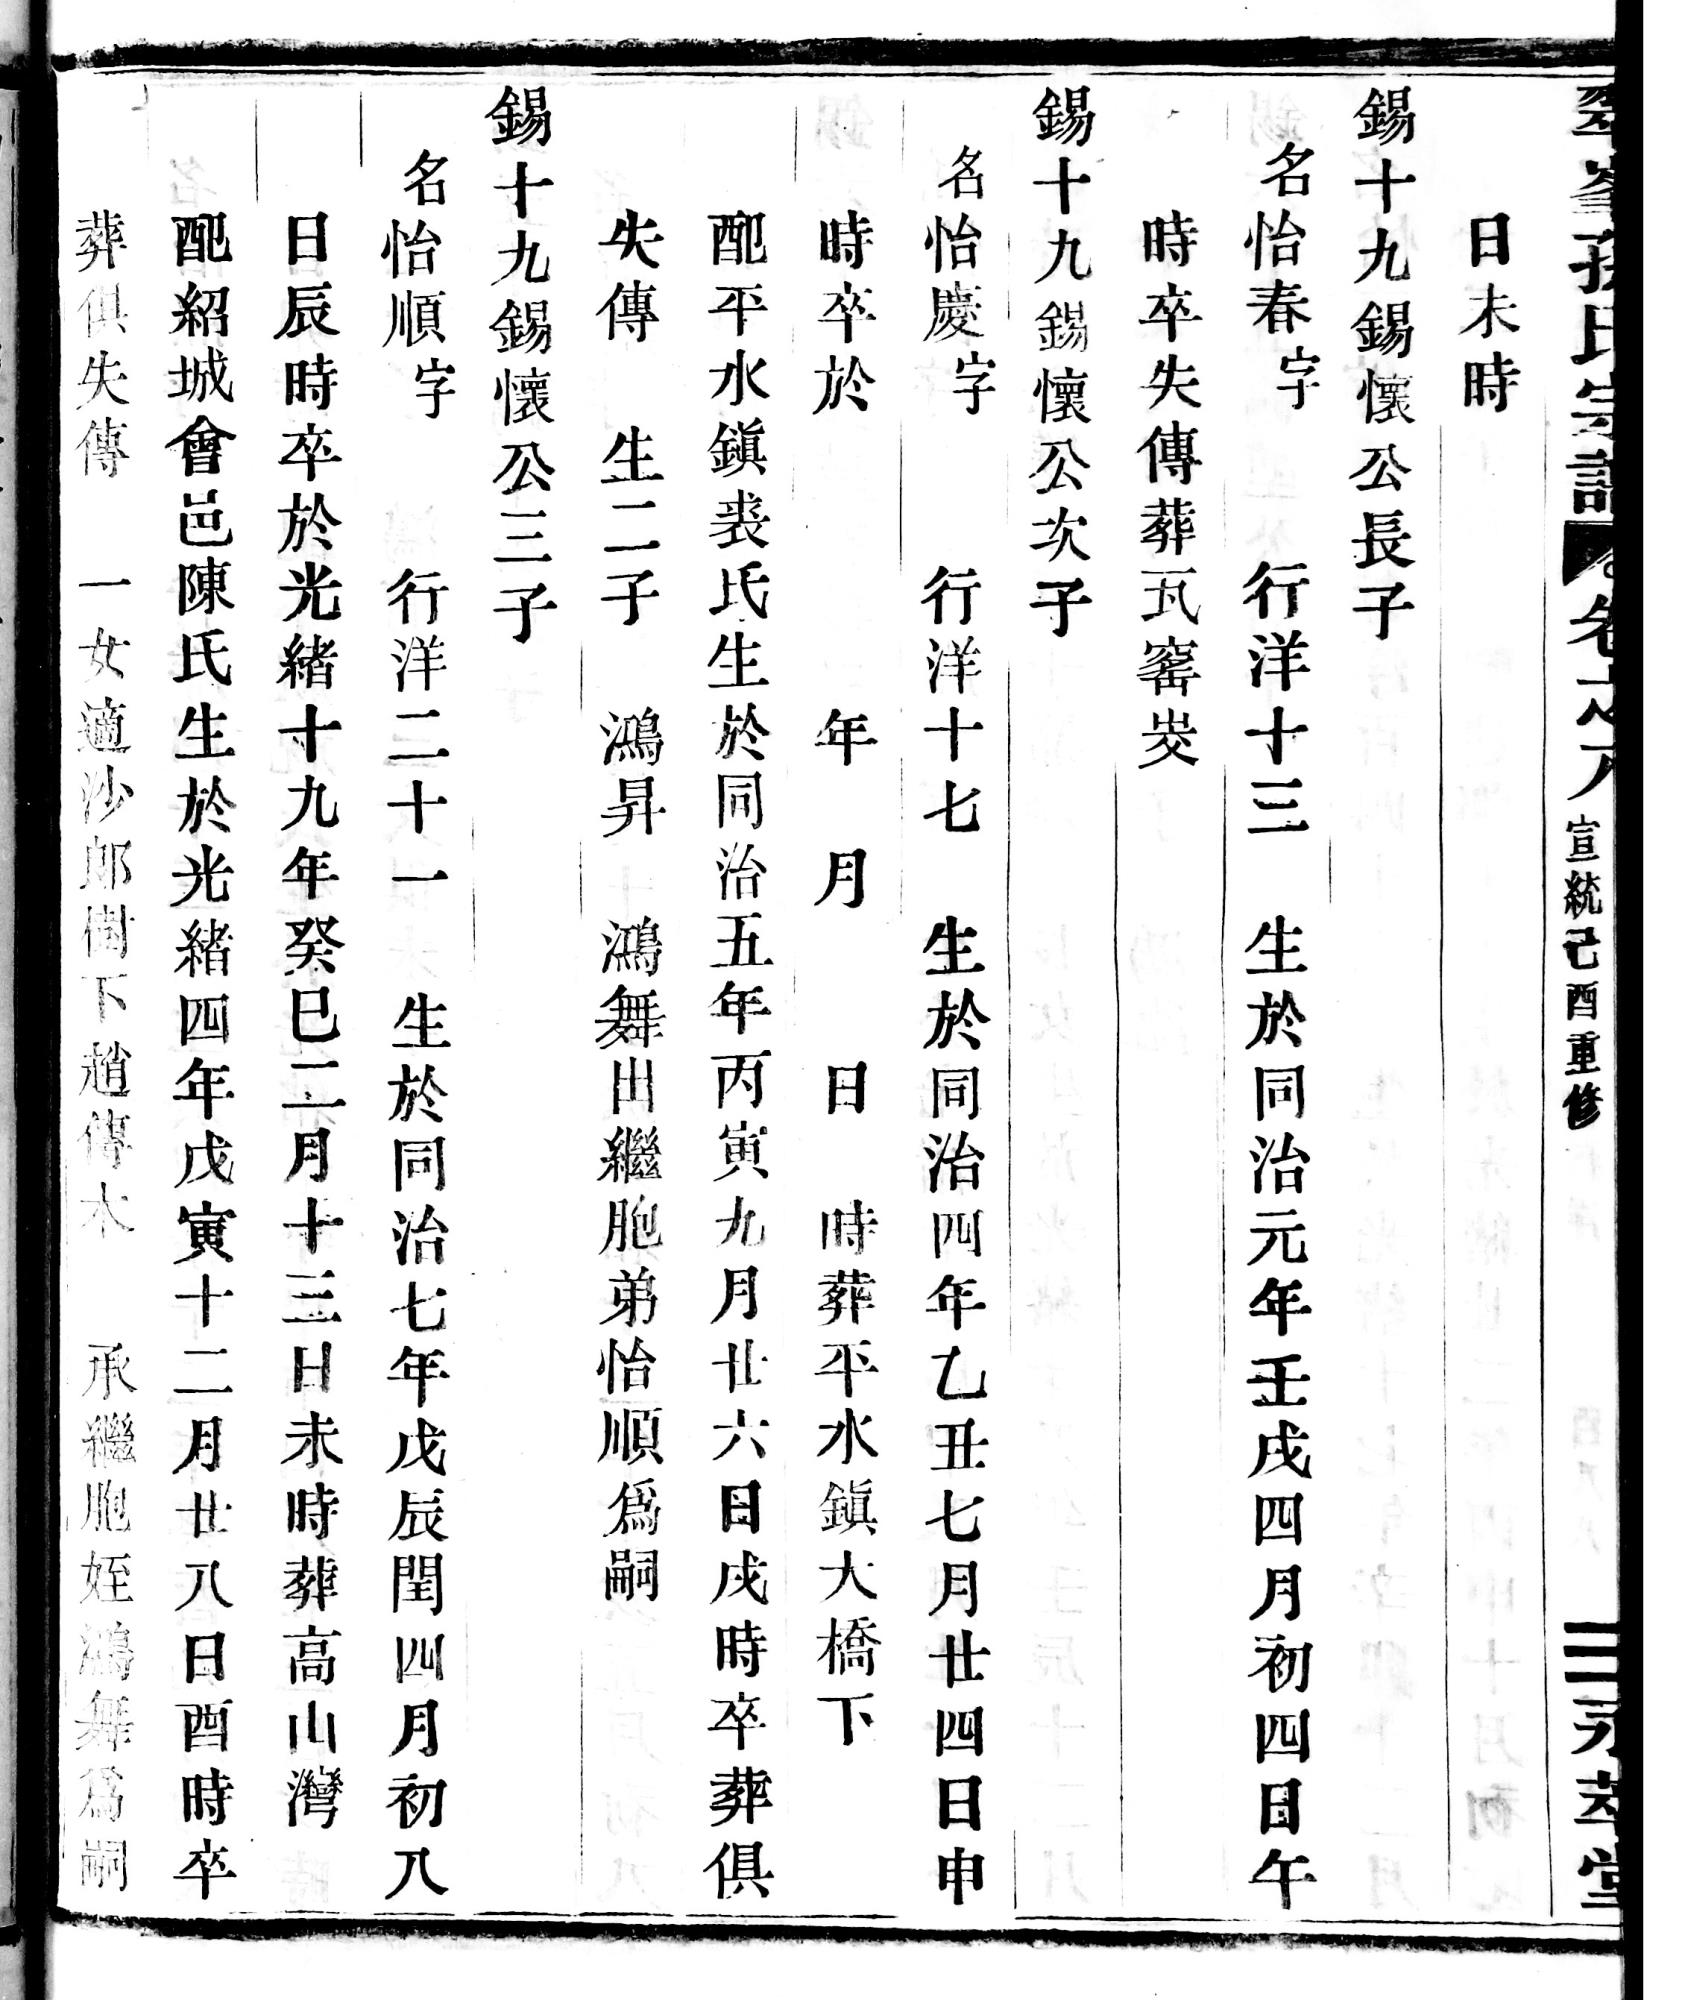 翠峯孫氏宗譜 卷之八 宣統己酉重修 二 永萃堂
日未時
錫十九錫懷公長子
名怡春字 行洋十三 生於同治元年壬戌四月初四日午
時卒失傳葬瓦窰岕
錫十九錫懷公次子
名怡慶字 行洋十七 生於同治四年乙丑七月廿四日申
時卒於 年 月 日 時葬平水鎭大橋下
配平水鎭裘氏生於同治五年丙寅九月廿六日戌時卒葬俱
失傳 生二子 鴻昇 鴻舞出繼胞弟怡順爲嗣
錫十九錫懷公三子
名怡順字 行洋二十一 生於同治七年戊辰閏四月初八
日辰時卒於光緒十九年癸巳二月十三日未時葬高山灣
配紹城會邑陳氏生於光緒四年戊寅十二月廿八日酉時卒
葬俱失傳 一女適沙郎樹下趙傳木 承繼胞姪鴻舞爲嗣